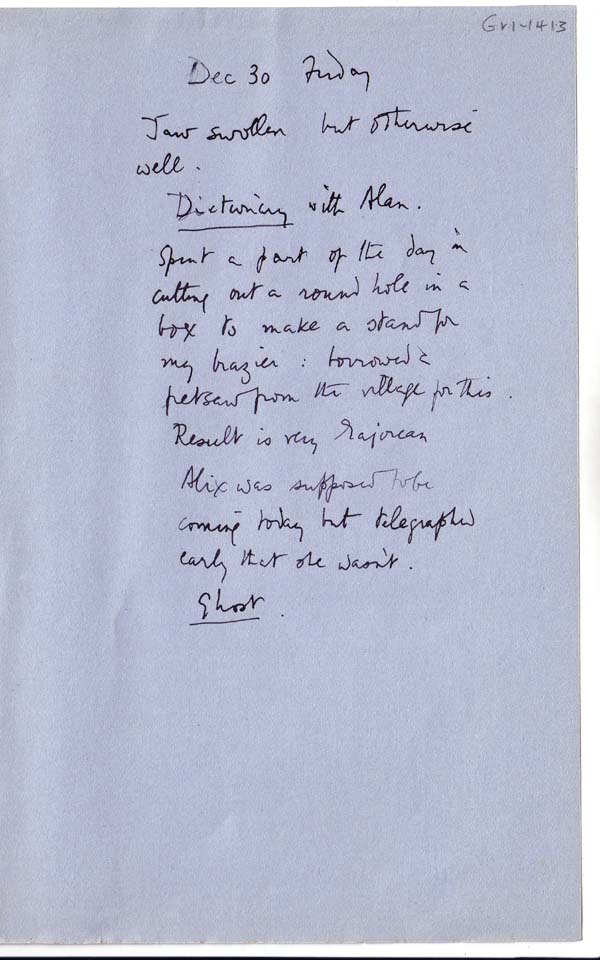 Gr1-1413
Dec 30 Friday
Jaw swollen but otherwise
well.
Dictionary with Alan.
Spent a part of the day in
cutting out a round hole in a
box to make a stand for
my brazier: borrowed a
fretsaw from the village for this.
Result is very Majorcan
Alix was supposed to be
coming today but telegraphed
early that she wasn't.
Ghost.